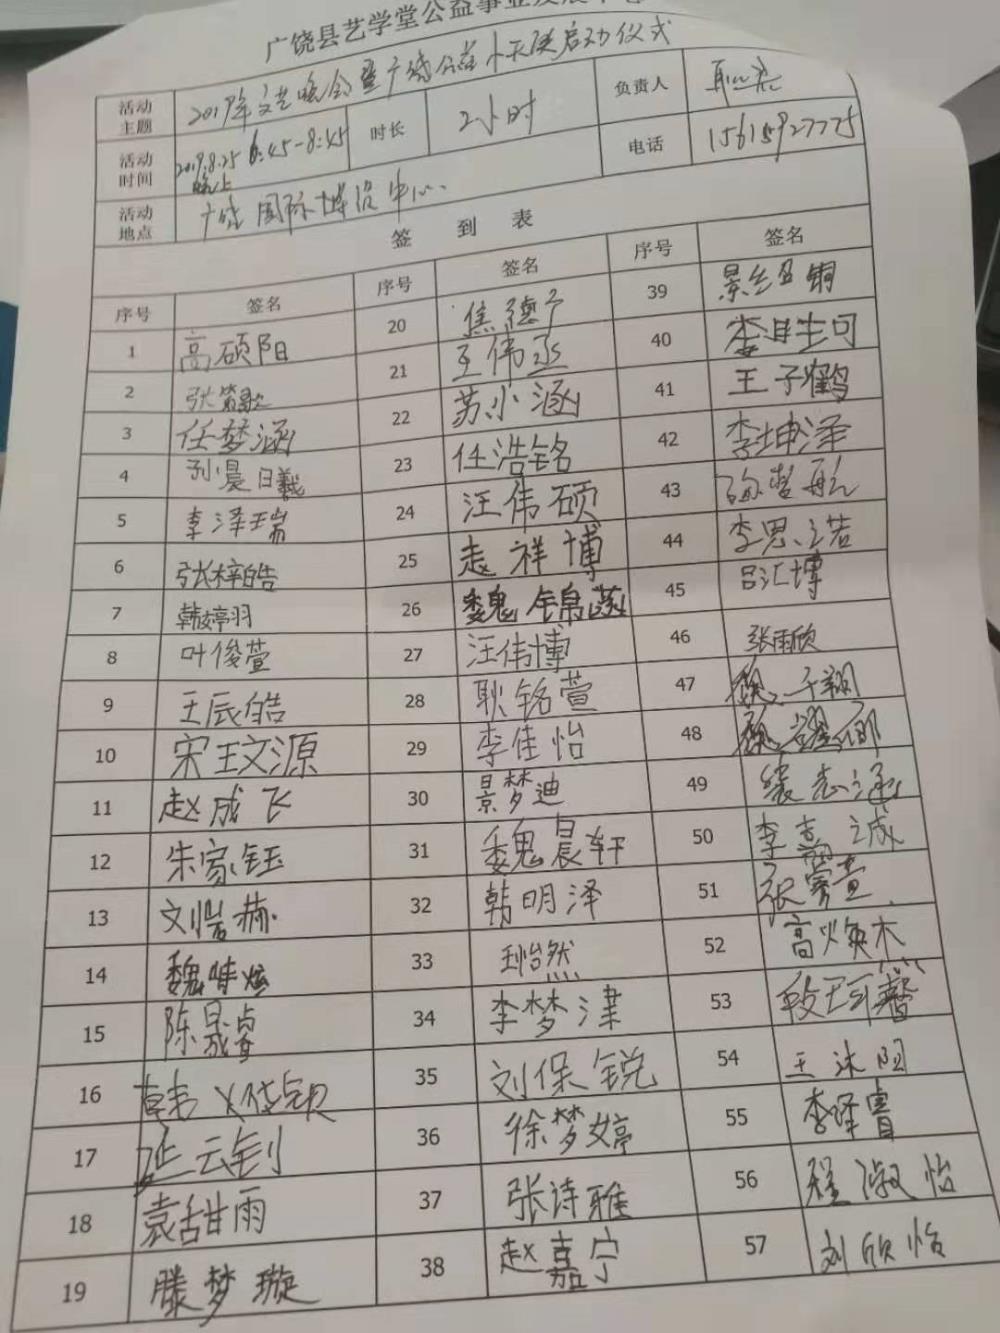 广饶县艺学堂公益事业发展中心
活动主题 2019年文艺晚会暨广饶公益小天使启动仪式 负责人
活动时间 2019.8.25 6:45-8:45 晚上 时长 2小时 电话 15615927775
活动地点 广饶国际博览中心.
签到表
序号 签名 序号 签名 序号 签名
1 高硕阳 20 焦德宁 39 景
2 张笫歌 21 王伟丞 40 李
3 任梦涵 22 苏小涵 41 王子鹤
4 孙晨曦 23 任浩铭 42 李坤泽
5 李泽瑞 24 汪伟硕 43
6 张梓皓 25 赵祥博 44 李思
7 韩婷羽 26 魏锦 45 吕汇博
8 叶俊萱 27 汪伟博 46 张雨欣
9 王辰皓 28 耿铭萱 47 子翔
10 宋王文源 29 李佳怡 48
11 赵成飞 30 景梦迪 49 志涵
12 朱家钰 31 魏晨轩 50 李嘉诚
13 刘 赫 32 韩明泽 51 张
14 魏 33 王怡然 52 高
15 陈晟睿 34 李梦津 53 段 馨
16 韩 35 刘保锐 54 王沐阳
17 延云钊 36 徐梦婷 55 李泽睿
18 袁甜雨 37 张诗雅 56 程淑怡
19 滕梦璇 38 赵嘉宁 57 刘欣怡